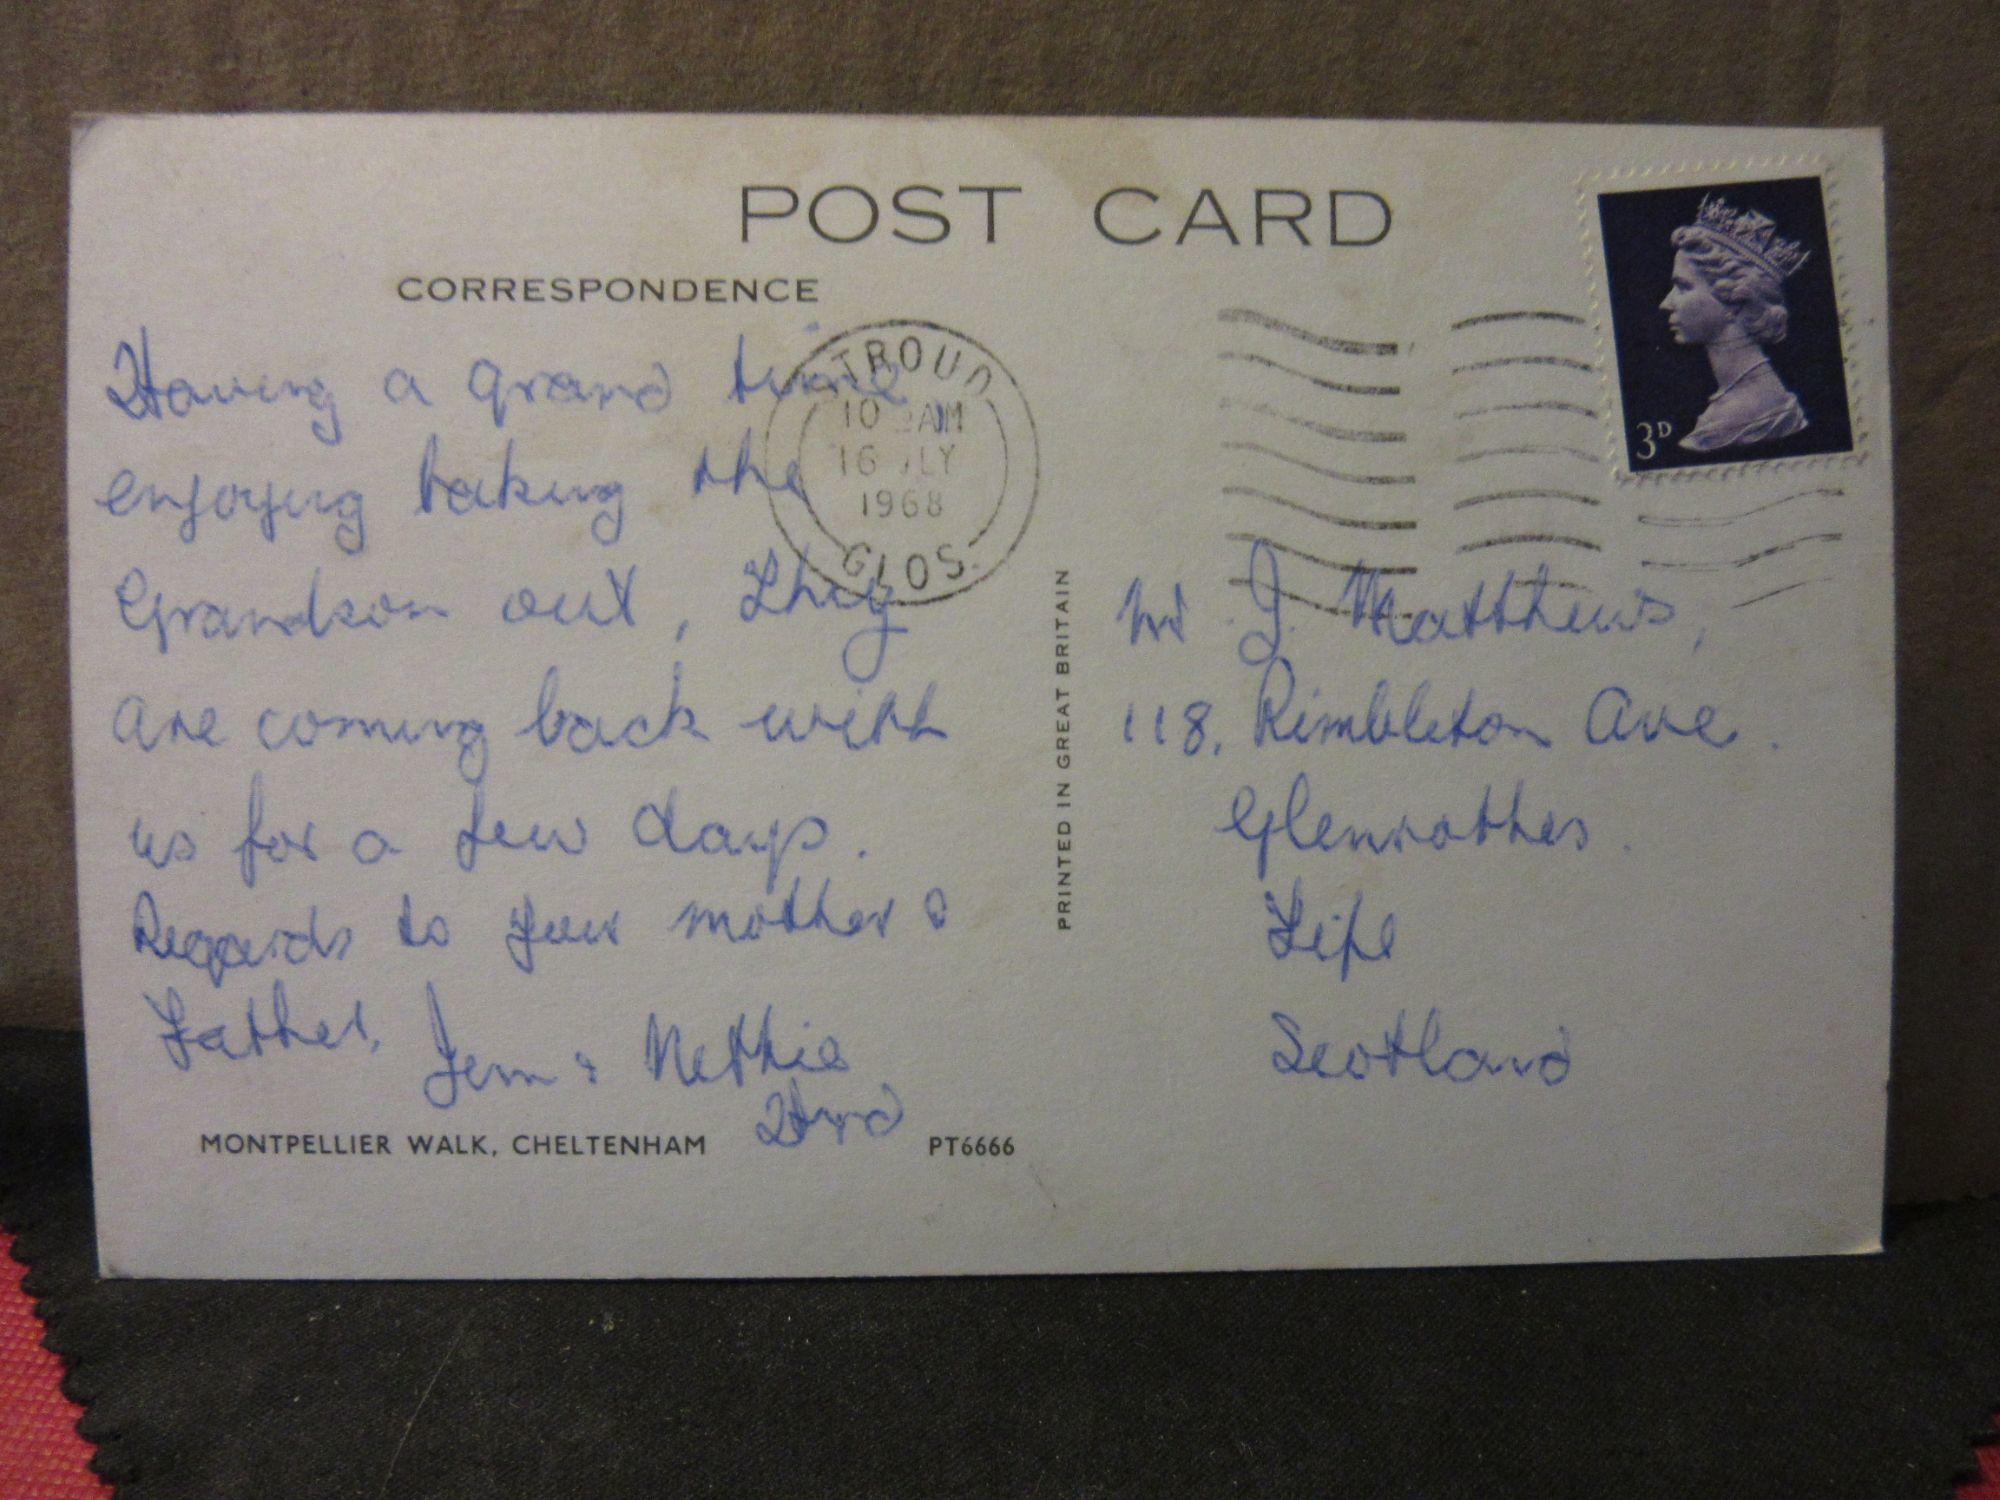 POST CARD
CORRESPONDENCE
Having a grand time
enjoying taking the
Grandson out, They
are coming back with
us for a few days.
Regards to your mother &
Father.
Jem & Nethie
Hrd
MONTPELLIER WALK, CHELTENHAM
PT6666
PRINTED IN GREAT BRITAIN
STROUD
10 AM
16 JLY
1968
GLOS.
3D
Mr J. Matthews,
118, Rimbleton Ave.
Glenrothes.
Fife
Scotland